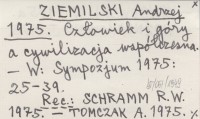 ZIEMILSKI Andrzej
1975. Człowiek i góry
a cywilizacja współczesna.
— W: Sympozjum 1975:
25-39.
Rec.: SCHRAMM R.W.
1975. = TOMCZAK A. 1975.